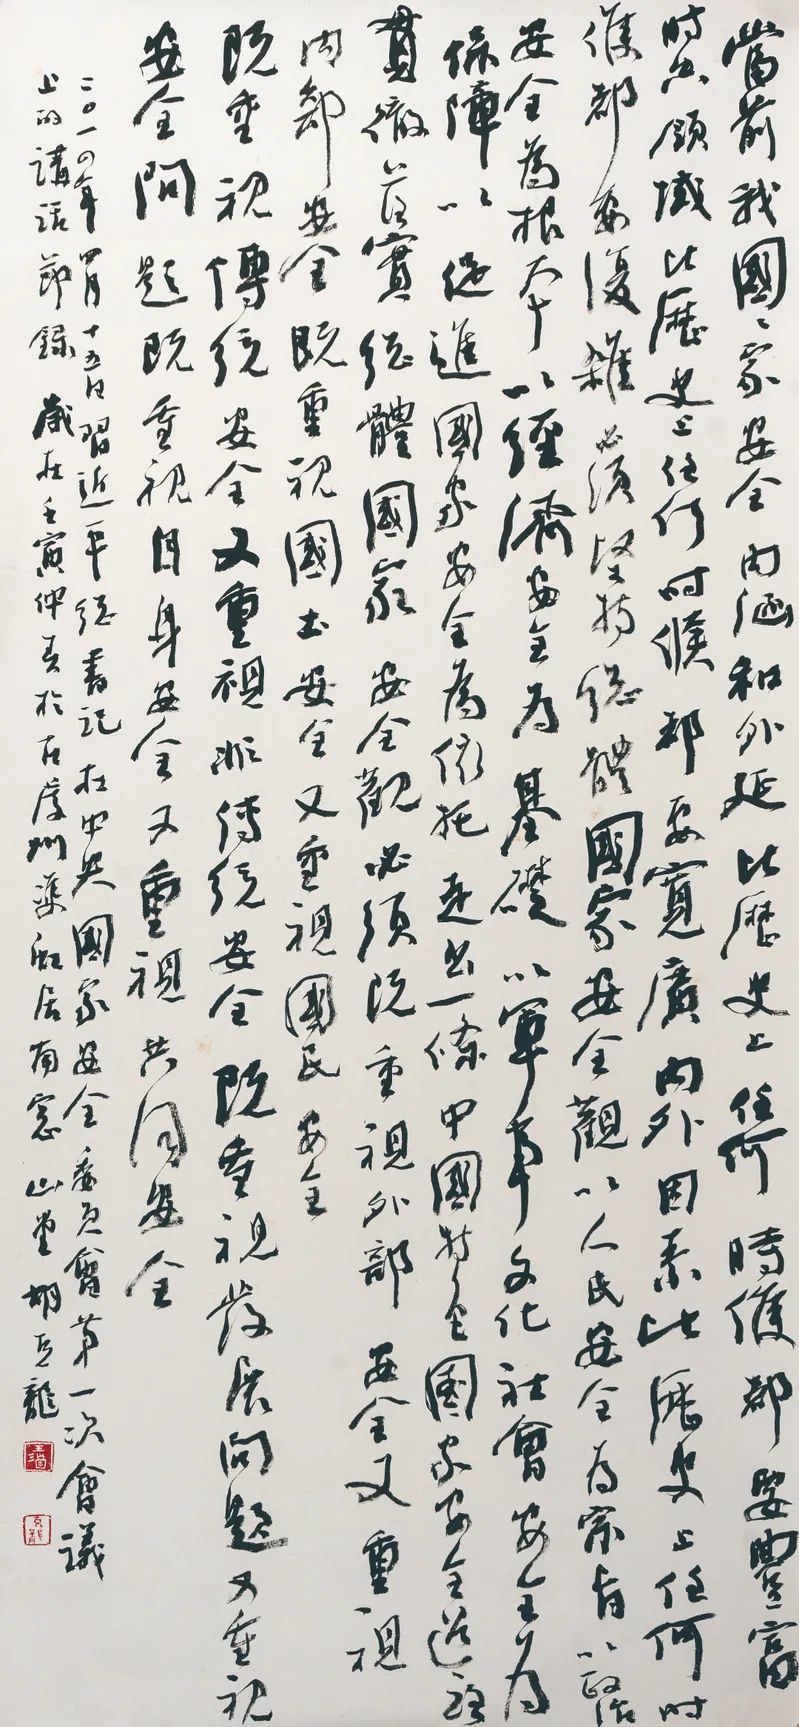 當前我國〻家安全內涵和外延比歷史上任何時候都要豐富
時空領域比歷史上任何時候都要寬廣內外因素比歷史上任何時
候都要復雜必須堅持總體國家安全觀以人民安全為宗旨以政治
安全為根本以經濟安全為基礎以軍事文化社會安全為
保障以促進國家安全為依托走出一條中國特色國家安全道路
貫徹落實總體國家安全觀必須既重視外部安全又重視
內部安全既重視國土安全又重視國民安全
既重視傳統安全又重視非傳統安全既重視發展問題又重視
安全問題既重視自身安全又重視共同安全
二〇一四年四月十五日習近平總書記在中央國家安全委員會第一次會議
上的講話節錄歲在壬寅仲春於古居南窓山堂胡龍